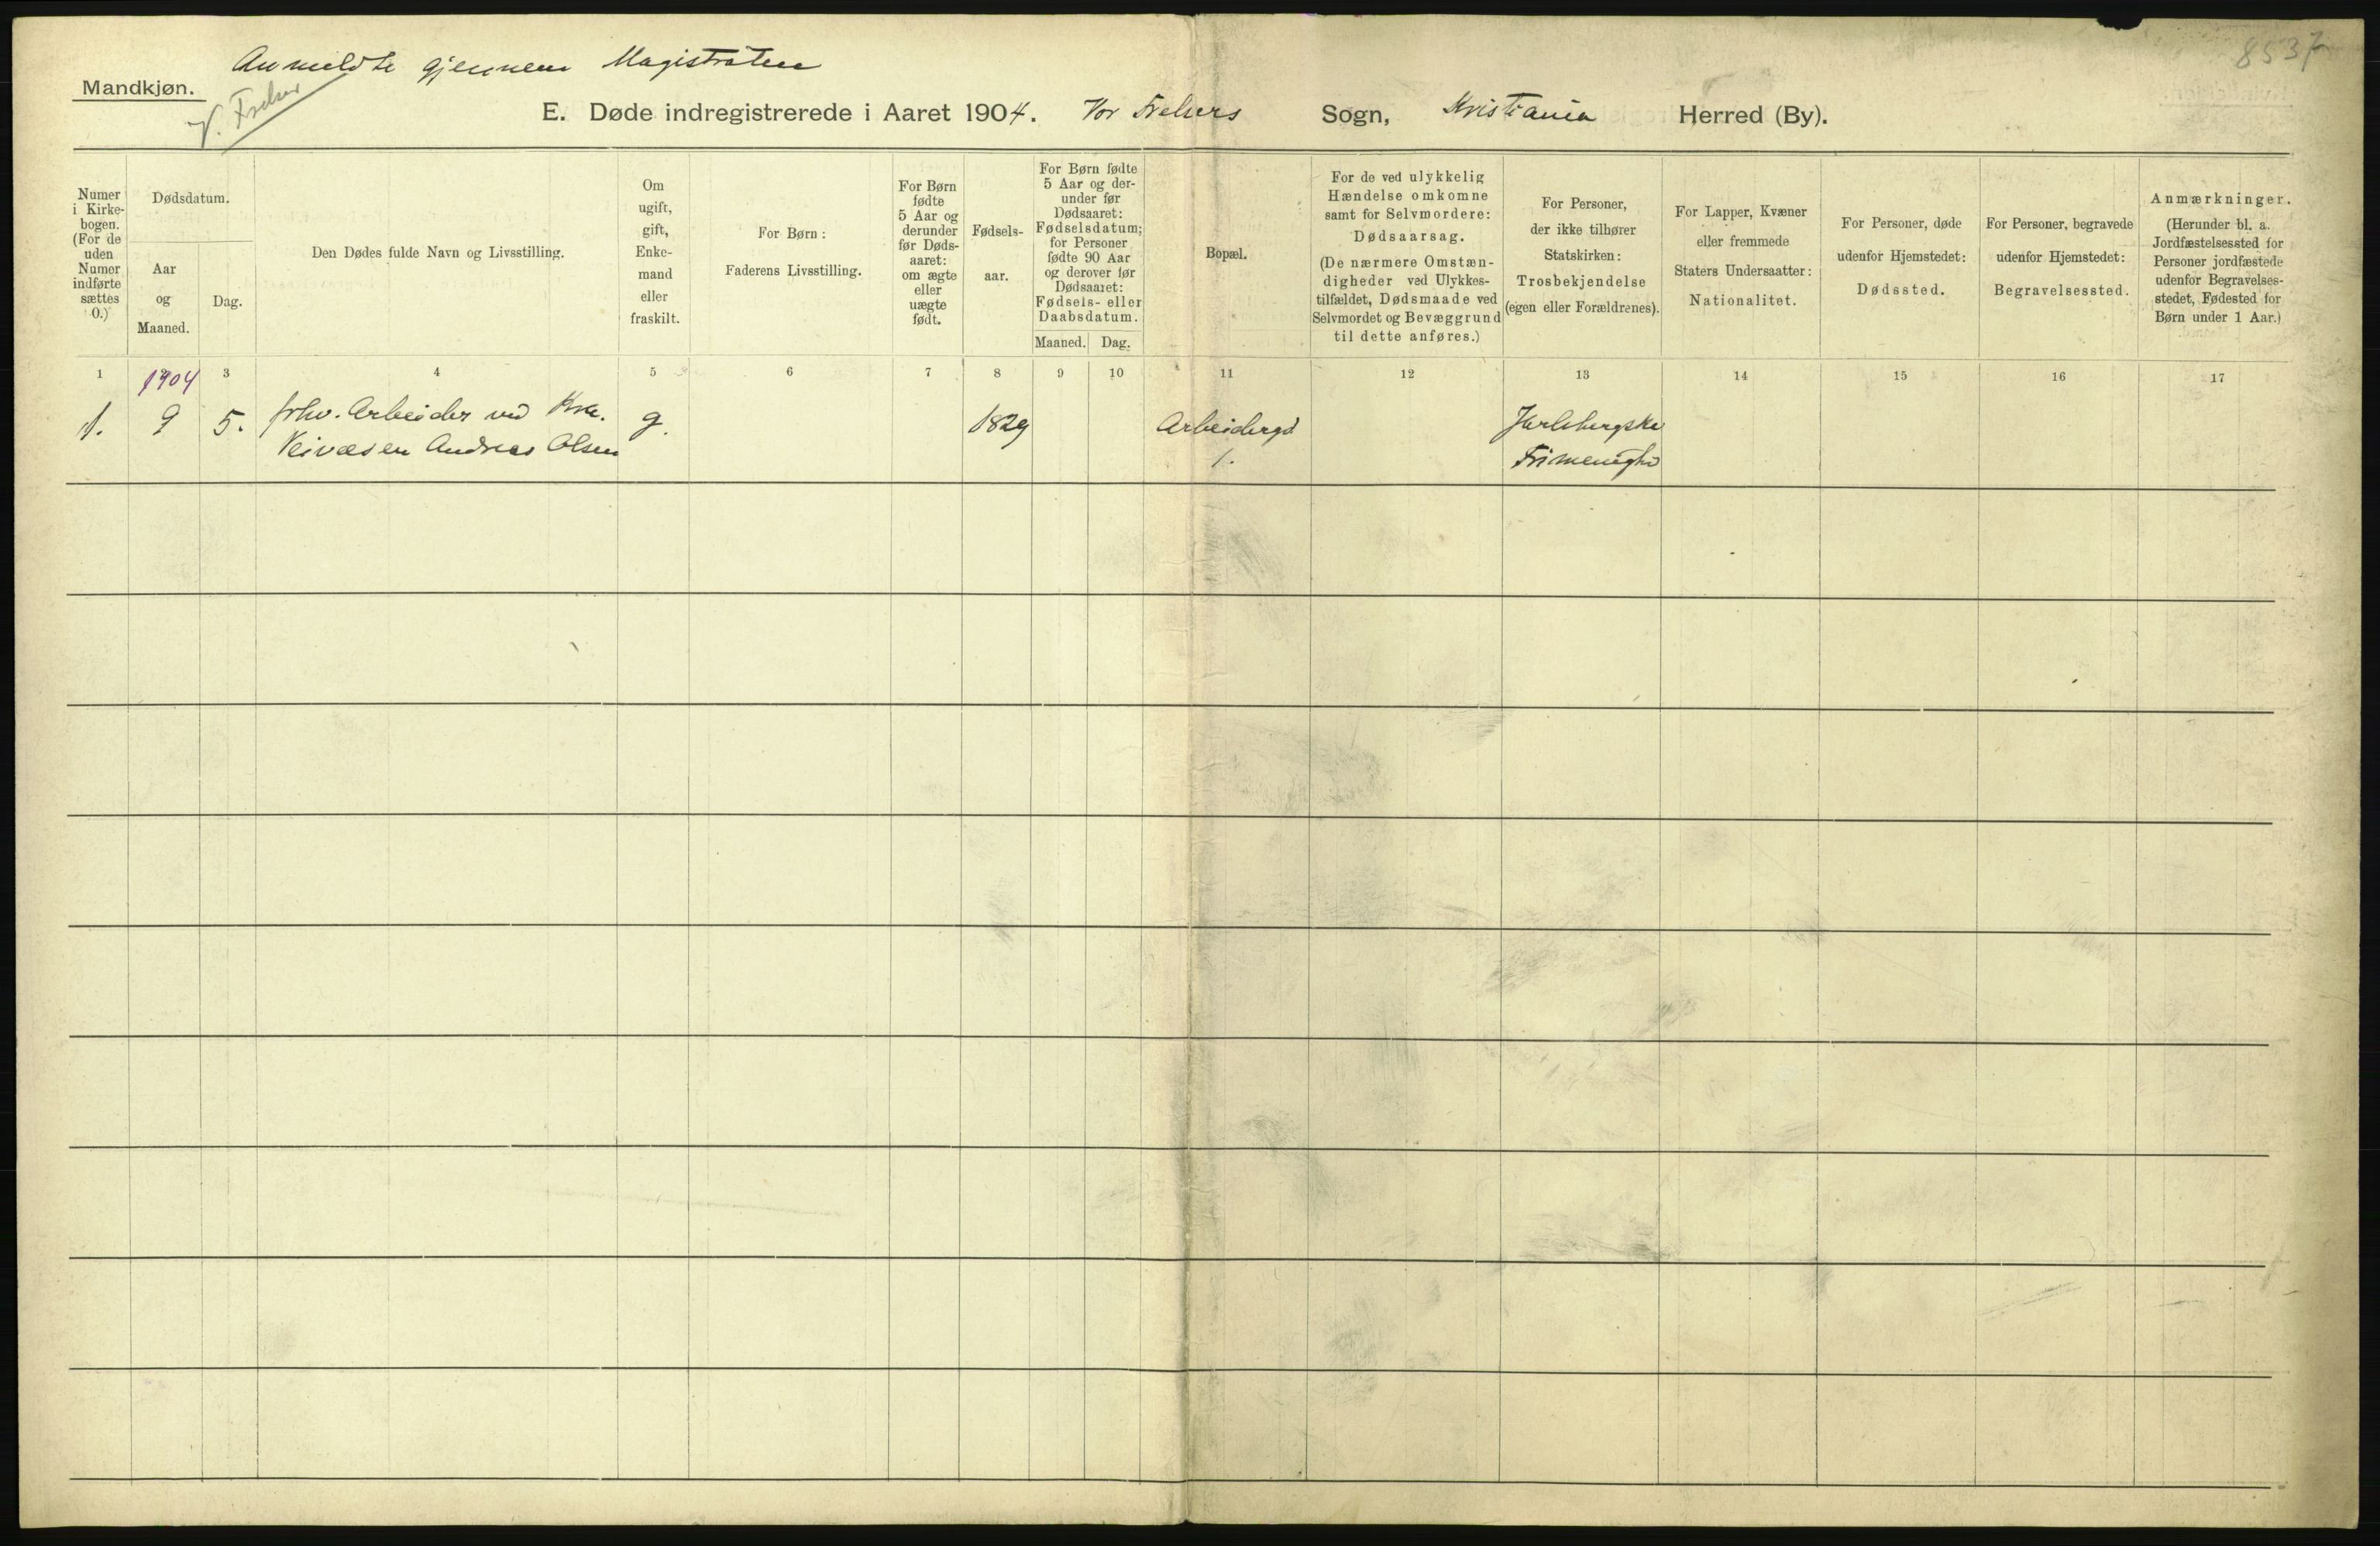 Anmeldte gjennem Magistraten
8537
Mandkjøn.
V. Frelser
E. Døde indregistrerede i Aaret 1904. Vor Frelsers Sogn, Kristiania Herred (By).
Numer
i Kirke-
bogen.
(For de
uden
Numer
indførte
sættes
0.)
Dødsdatum.
Aar
og
Maaned.
Dag.
Den Dødes fulde Navn og Livsstilling.
Om
ugift,
gift,
Enke-
mand
eller
fraskilt.
For Børn:
Faderens Livsstilling.
For Børn
fødte
5 Aar og
derunder
før Døds-
aaret:
om ægte
eller
uægte
født.
Fødsels-
aar.
For Børn fødte
5 Aar og der-
under før
Dødsaaret:
Fødselsdatum;
for Personer
fødte 90 Aar
og derover før
Dødsaaret:
Fødsels- eller
Daabsdatum.
Maaned. Dag.
Bopæl.
For de ved ulykkelig
Hændelse omkomne
samt for Selvmordere:
Dødsaarsag.
(De nærmere Omstæn-
digheder ved Ulykkes-
tilfældet, Dødsmaade ved
Selvmordet og Bevæggrund
til dette anføres.)
For Personer,
der ikke tilhører
Statskirken:
Trosbekjendelse
(egen eller Forældrenes).
For Lapper, Kvæner
eller fremmede
Staters Undersaatter:
Nationalitet.
For Personer, døde
udenfor Hjemstedet:
Dødssted.
For Personer, begravede
udenfor Hjemstedet:
Begravelsessted.
Anmærkninger.
(Herunder bl. a.
Jordfæstelsessted for
Personer jordfæstede
udenfor Begravelses-
stedet, Fødested for
Børn under 1 Aar.)
1 1904 3 4 5 6 7 8 9 10 11 12 13 14 15 16 17
1. 9 5. frhv. Arbeider ved Kra. g. 1829 Arbeidergd Jarlsbergske
Veivæsen Andreas Olsen 1. Frimenighd